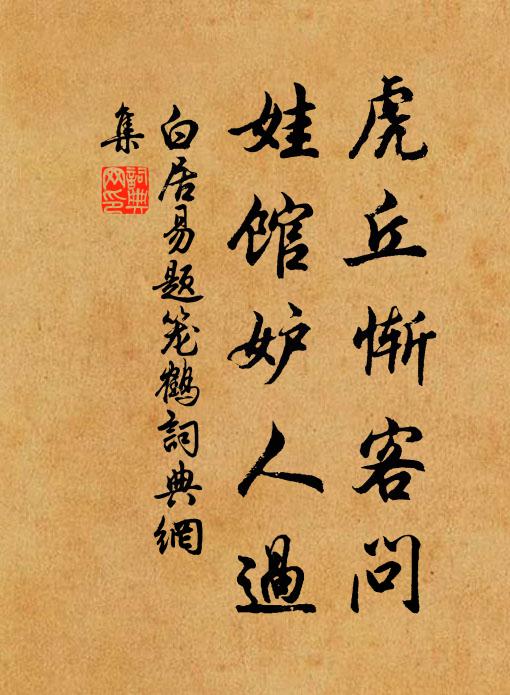 虎丘惭客问
娃馆妒人過
白居易题笼鹤詞典網
集
詞典
网印